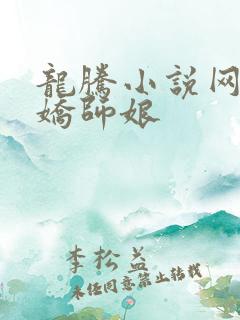 龍騰小說网
嬌師娘
李松益
未经同意禁止转载